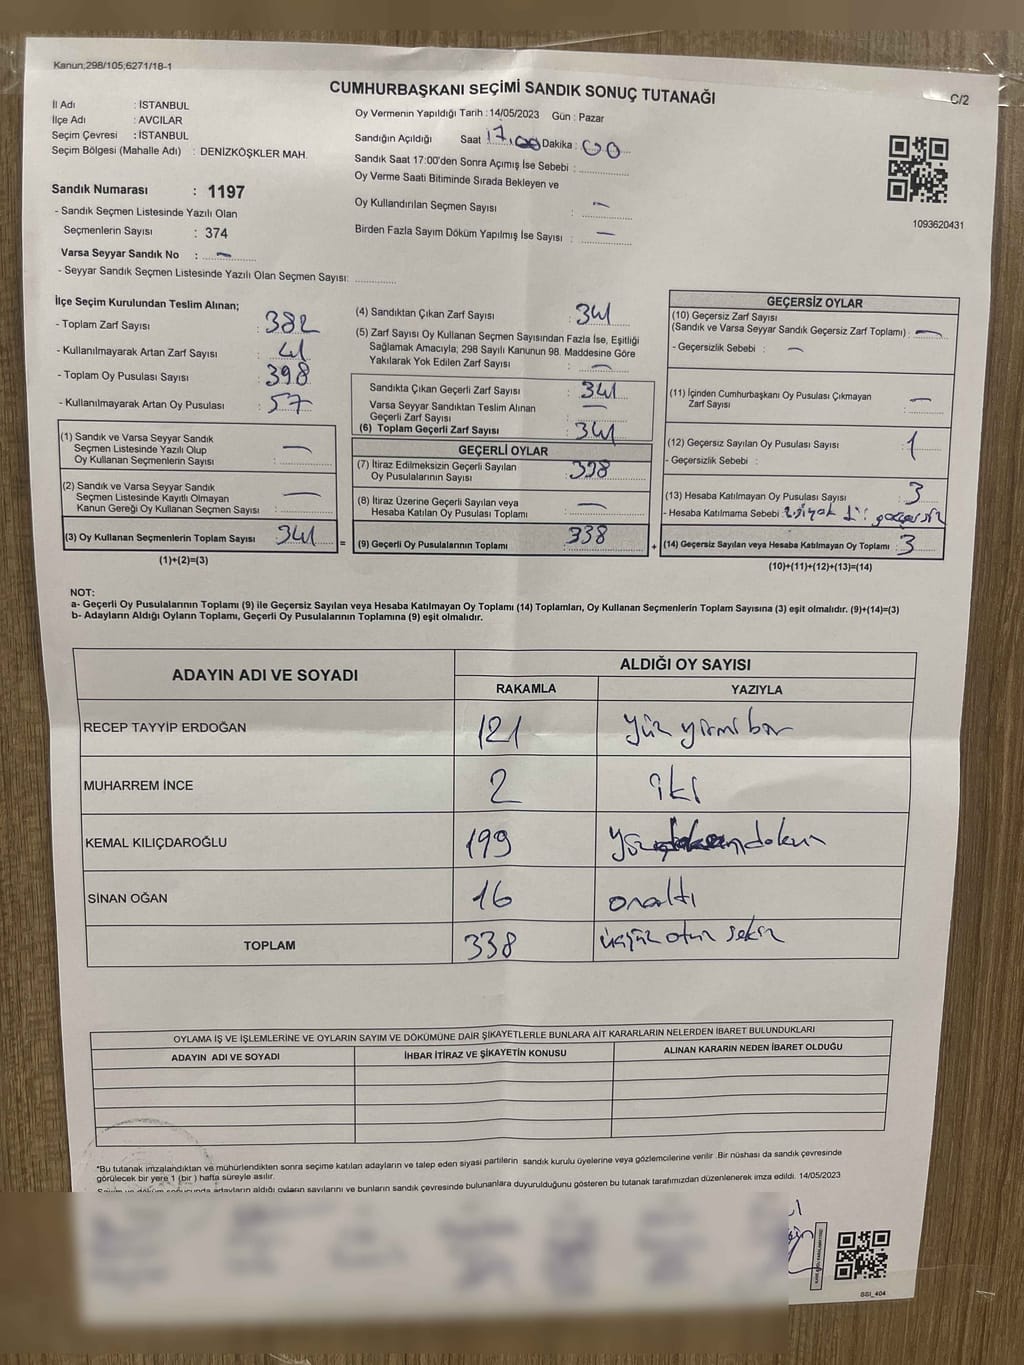 Kanun;298/105;6271/18-1
CUMHURBAŞKANI SEÇİMİ SANDIK SONUÇ TUTANAĞI
C/2
İl Adı : İSTANBUL
İlçe Adı : AVCILAR
Seçim Çevresi : İSTANBUL
Seçim Bölgesi (Mahalle Adı) : DENİZKÖŞKLER MAH.
Oy Vermenin Yapıldığı Tarih : 14/05/2023 Gün : Pazar
Sandığın Açıldığı Saat 17.00 Dakika : 00
Sandık Saat 17:00'den Sonra Açımış İse Sebebi :
Oy Verme Saati Bitiminde Sırada Bekleyen ve
Oy Kullandırılan Seçmen Sayısı : —
Birden Fazla Sayım Döküm Yapılmış İse Sayısı : —
1093620431
Sandık Numarası : 1197
- Sandık Seçmen Listesinde Yazılı Olan
Seçmenlerin Sayısı : 374
Varsa Seyyar Sandık No : —
- Seyyar Sandık Seçmen Listesinde Yazılı Olan Seçmen Sayısı:
İlçe Seçim Kurulundan Teslim Alınan;
- Toplam Zarf Sayısı : 382
- Kullanılmayarak Artan Zarf Sayısı : 41
- Toplam Oy Pusulası Sayısı : 398
- Kullanılmayarak Artan Oy Pusulası : 57
(1) Sandık ve Varsa Seyyar Sandık
Seçmen Listesinde Yazılı Olup
Oy Kullanan Seçmenlerin Sayısı : —
(2) Sandık ve Varsa Seyyar Sandık
Seçmen Listesinde Kayıtlı Olmayan
Kanun Gereği Oy Kullanan Seçmen Sayısı : —
(3) Oy Kullanan Seçmenlerin Toplam Sayısı 341
(1)+(2)=(3)
=
(4) Sandıktan Çıkan Zarf Sayısı : 341
(5) Zarf Sayısı Oy Kullanan Seçmen Sayısından Fazla İse, Eşitliği
Sağlamak Amacıyla; 298 Sayılı Kanunun 98. Maddesine Göre
Yakılarak Yok Edilen Zarf Sayısı : —
Sandıkta Çıkan Geçerli Zarf Sayısı : 341
Varsa Seyyar Sandıktan Teslim Alınan
Geçerli Zarf Sayısı : —
(6) Toplam Geçerli Zarf Sayısı : 341
GEÇERLİ OYLAR
(7) İtiraz Edilmeksizin Geçerli Sayılan
Oy Pusulalarının Sayısı : 338
(8) İtiraz Üzerine Geçerli Sayılan veya
Hesaba Katılan Oy Pusulası Toplamı : —
(9) Geçerli Oy Pusulalarının Toplamı : 338
+
GEÇERSİZ OYLAR
(10) Geçersiz Zarf Sayısı
(Sandık ve Varsa Seyyar Sandık Geçersiz Zarf Toplamı) : —
- Geçersizlik Sebebi : —
(11) İçinden Cumhurbaşkanı Oy Pusulası Çıkmayan
Zarf Sayısı : —
(12) Geçersiz Sayılan Oy Pusulası Sayısı : 1
- Geçersizlik Sebebi :
(13) Hesaba Katılmayan Oy Pusulası Sayısı : 3
- Hesaba Katılmama Sebebi : geçersiz
(14) Geçersiz Sayılan veya Hesaba Katılmayan Oy Toplamı : 3
(10)+(11)+(12)+(13)=(14)
NOT:
a- Geçerli Oy Pusulalarının Toplamı (9) ile Geçersiz Sayılan veya Hesaba Katılmayan Oy Toplamı (14) Toplamları, Oy Kullanan Seçmenlerin Toplam Sayısına (3) eşit olmalıdır. (9)+(14)=(3)
b- Adayların Aldığı Oyların Toplamı, Geçerli Oy Pusulalarının Toplamına (9) eşit olmalıdır.
ADAYIN ADI VE SOYADI ALDIĞI OY SAYISI
RAKAMLA YAZIYLA
RECEP TAYYİP ERDOĞAN 121 yüz yirmi bir
MUHARREM İNCE 2 iki
KEMAL KILIÇDAROĞLU 199 yüz dokuz
SİNAN OĞAN 16 onaltı
TOPLAM 338 üçyüz otuz sekiz
OYLAMA İŞ VE İŞLEMLERİNE VE OYLARIN SAYIM VE DÖKÜMÜNE DAİR ŞİKAYETLERLE BUNLARA AİT KARARLARIN NELERDEN İBARET BULUNDUKLARI
ADAYIN ADI VE SOYADI İHBAR İTİRAZ VE ŞİKAYETİN KONUSU ALINAN KARARIN NEDEN İBARET OLDUĞU
*Bu tutanak imzalandıktan ve mühürlendikten sonra seçime katılan adayların ve talep eden siyasi partilerin sandık kurulu üyelerine veya gözlemcilerine verilir. Bir nüshası da sandık çevresinde
görülecek bir yere 1 (bir) hafta süreyle asılır.
Sayım ve döküm sonucunda adayların aldığı oyların sayılarını ve bunların sandık çevresinde bulunanlara duyurulduğunu gösteren bu tutanak tarafımızdan düzenlenerek imza edildi. 14/05/2023
SSI_404